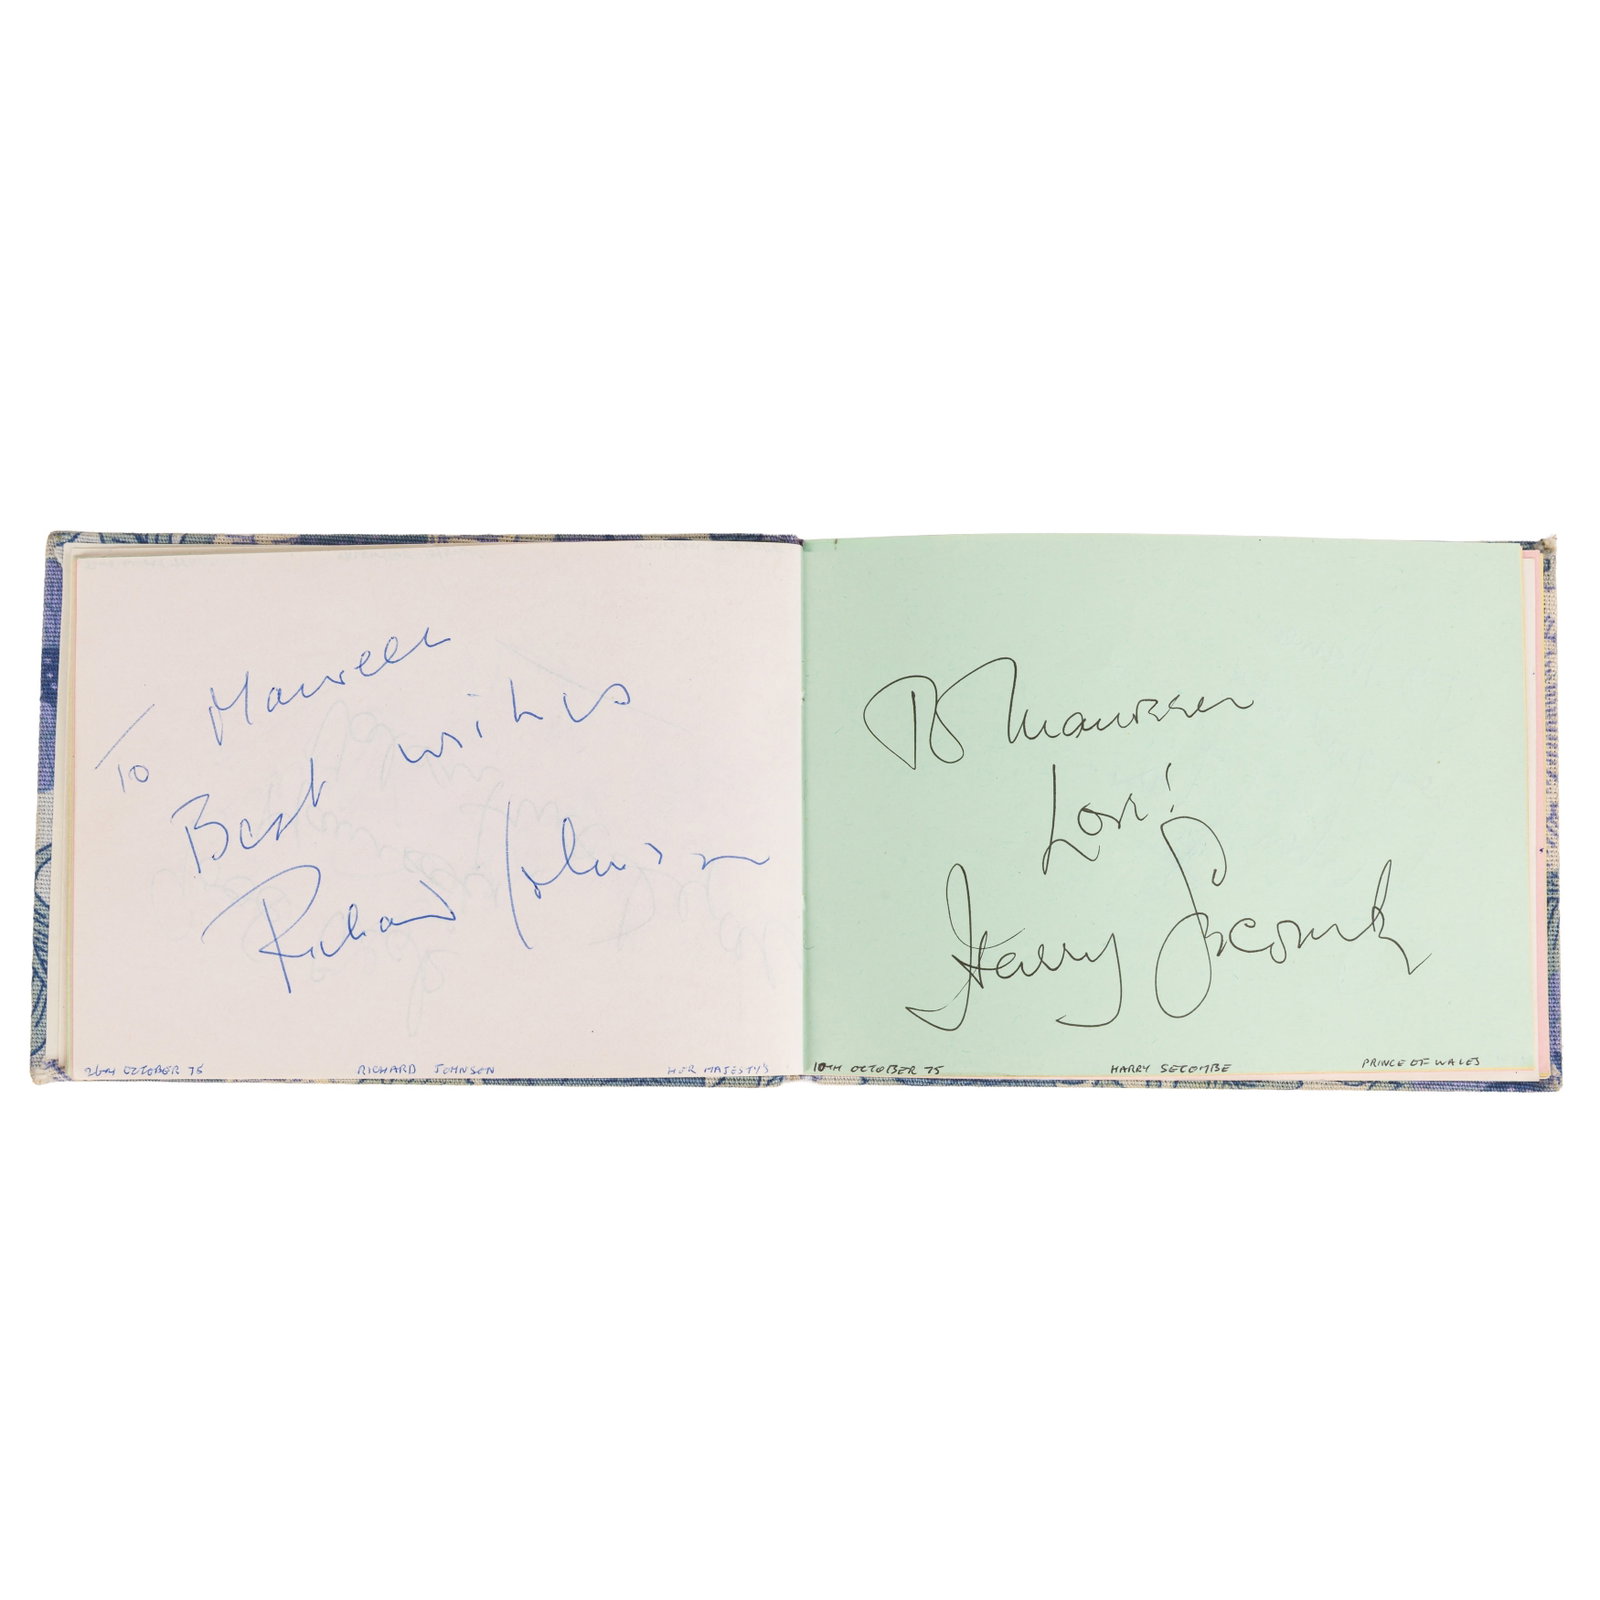 To Maureen
Best wishes
Richard Johnson
26TH OCTOBER 75 RICHARD JOHNSON HER MAJESTY'S
To Maureen
Love!
Harry Secombe
10TH OCTOBER 75 HARRY SECOMBE PRINCE OF WALES